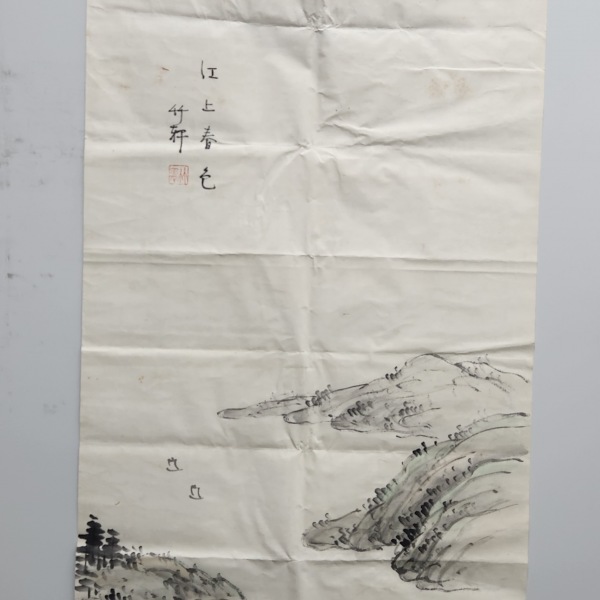 江上春色
竹軒